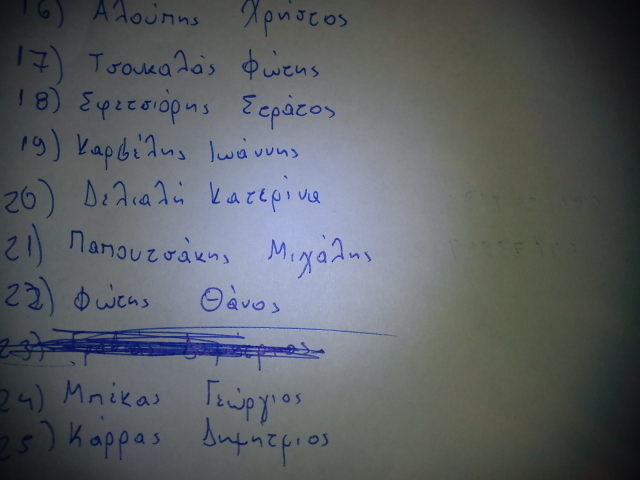 16) Αλούπης Χρήστος
17) Τσουκαλάς Φώτης
18) Σφετσιόρης Στράτος
19) Καρβέλης Ιωάννης
20) Δελιαλή Κατερίνα
21) Παπουτσάκης Μιχάλης
22) Φώτης Θάνος
23)
24) Μπέκας Γεώργιος
25) Κάρρας Δημήτριος